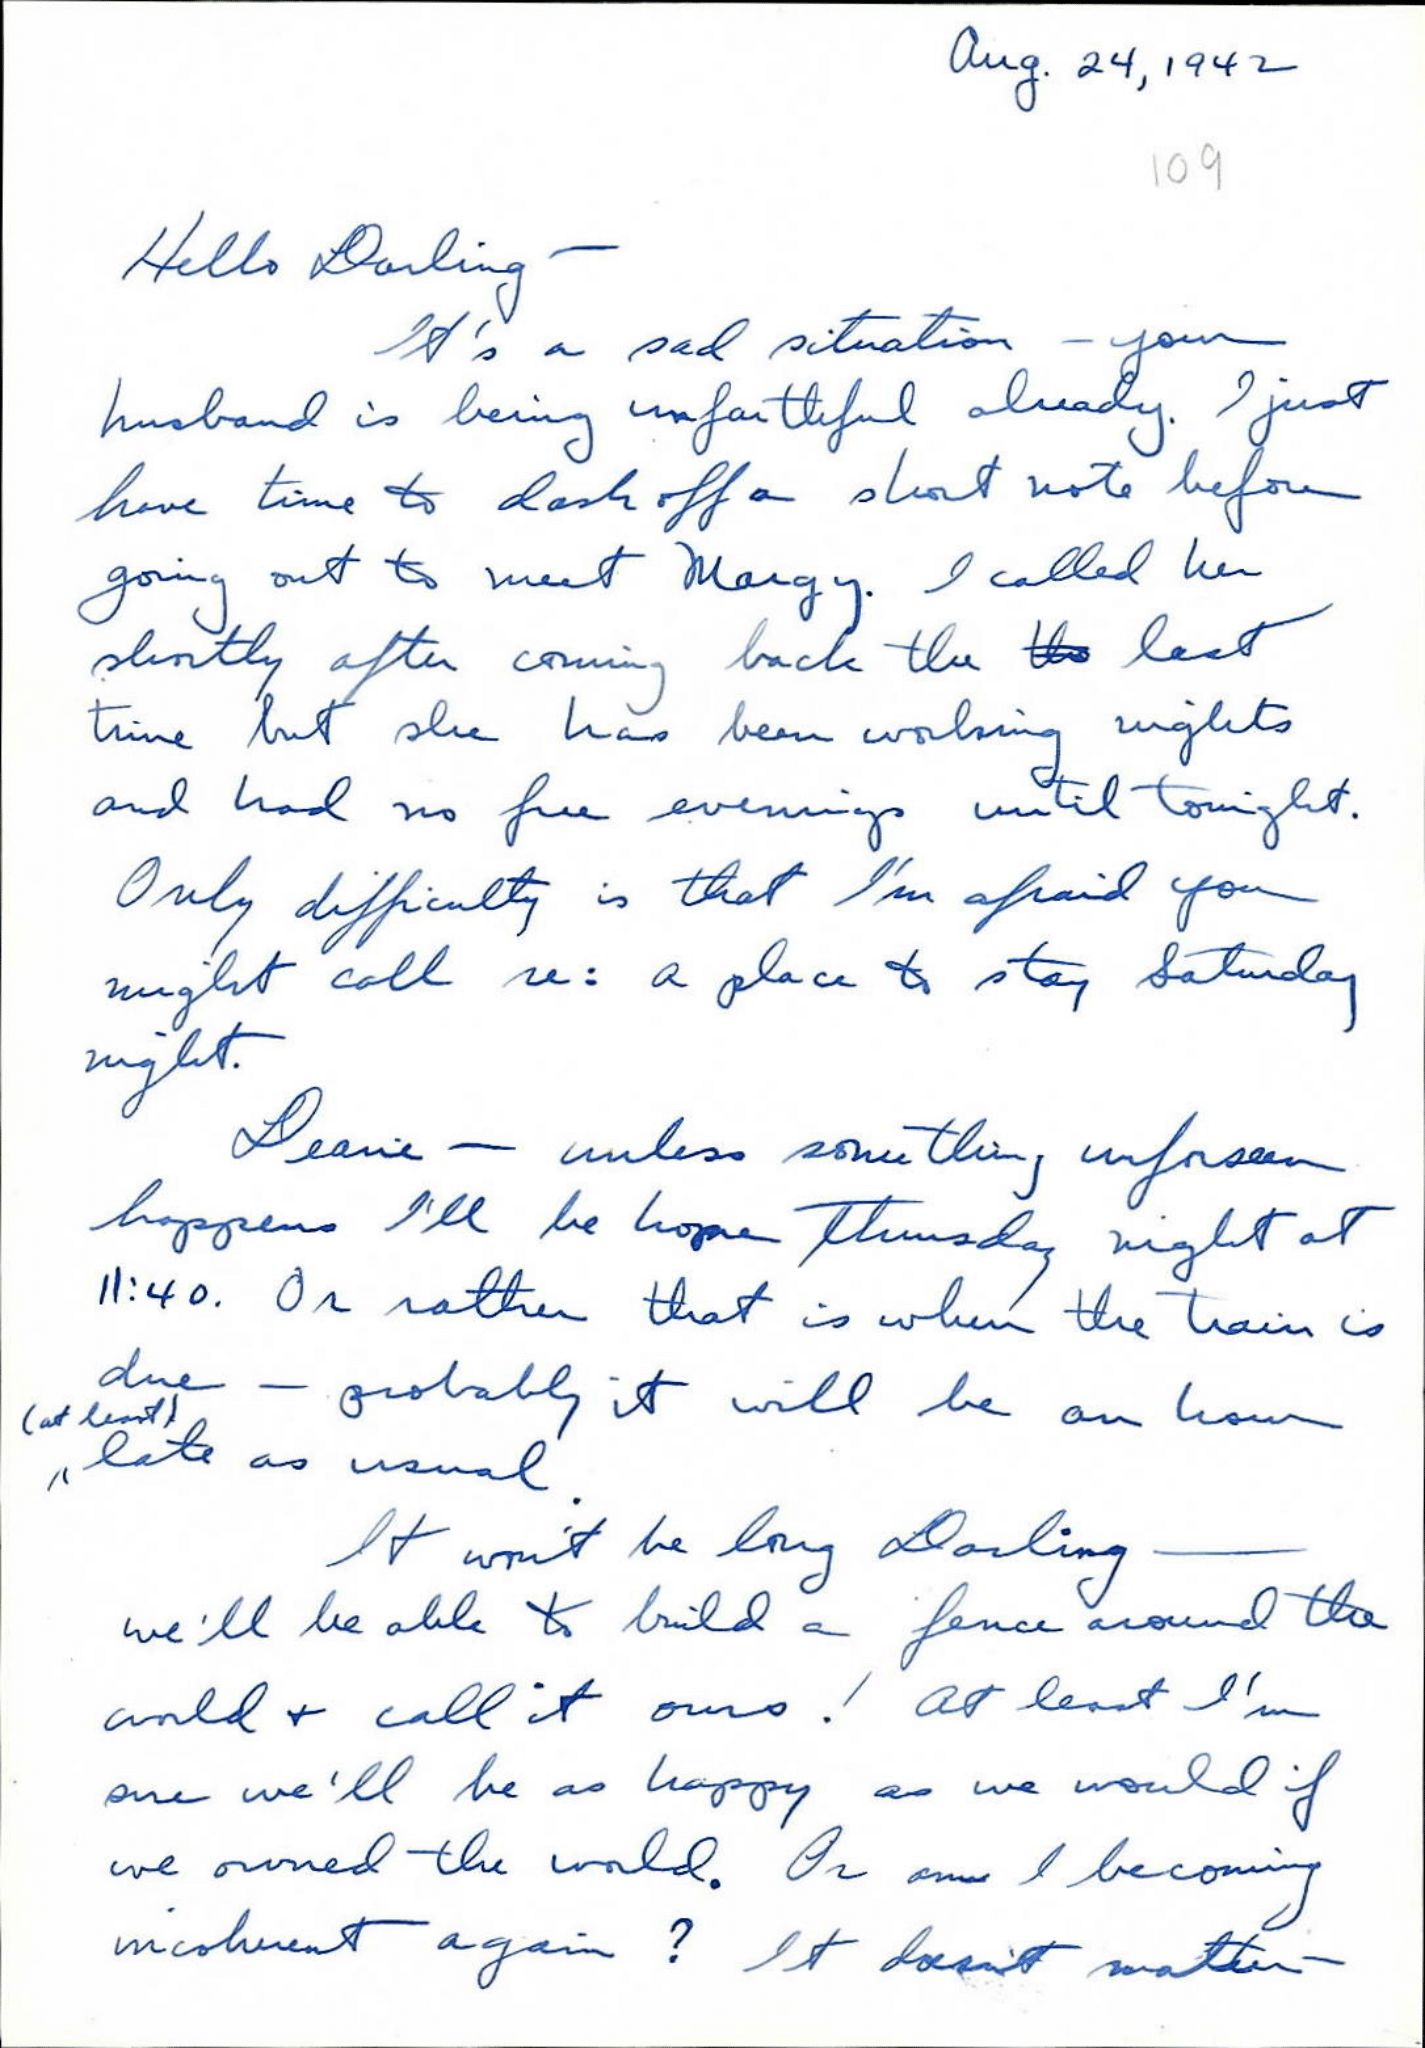 Aug. 24, 1942
109
Hello Darling —
It's a sad situation — your
husband is being unfaithful already. I just
have time to dash off a short note before
going out to meet Margy. I called her
shortly after coming back the the last
time but she has been working nights
and had no free evenings until tonight.
Only difficulty is that I'm afraid you
might call re: a place to stay Saturday
night.
Dearie — unless something unforseen
happens I'll be home Thursday night at
11:40. Or rather that is when the train is
due — probably it will be an hour
(at least)
late as usual.
It won't be long Darling —
we'll be able to build a fence around the
world + call it ours! At least I'm
sure we'll be as happy as we would if
we owned the world. Or am I becoming
incoherent again? It doesn't matter —